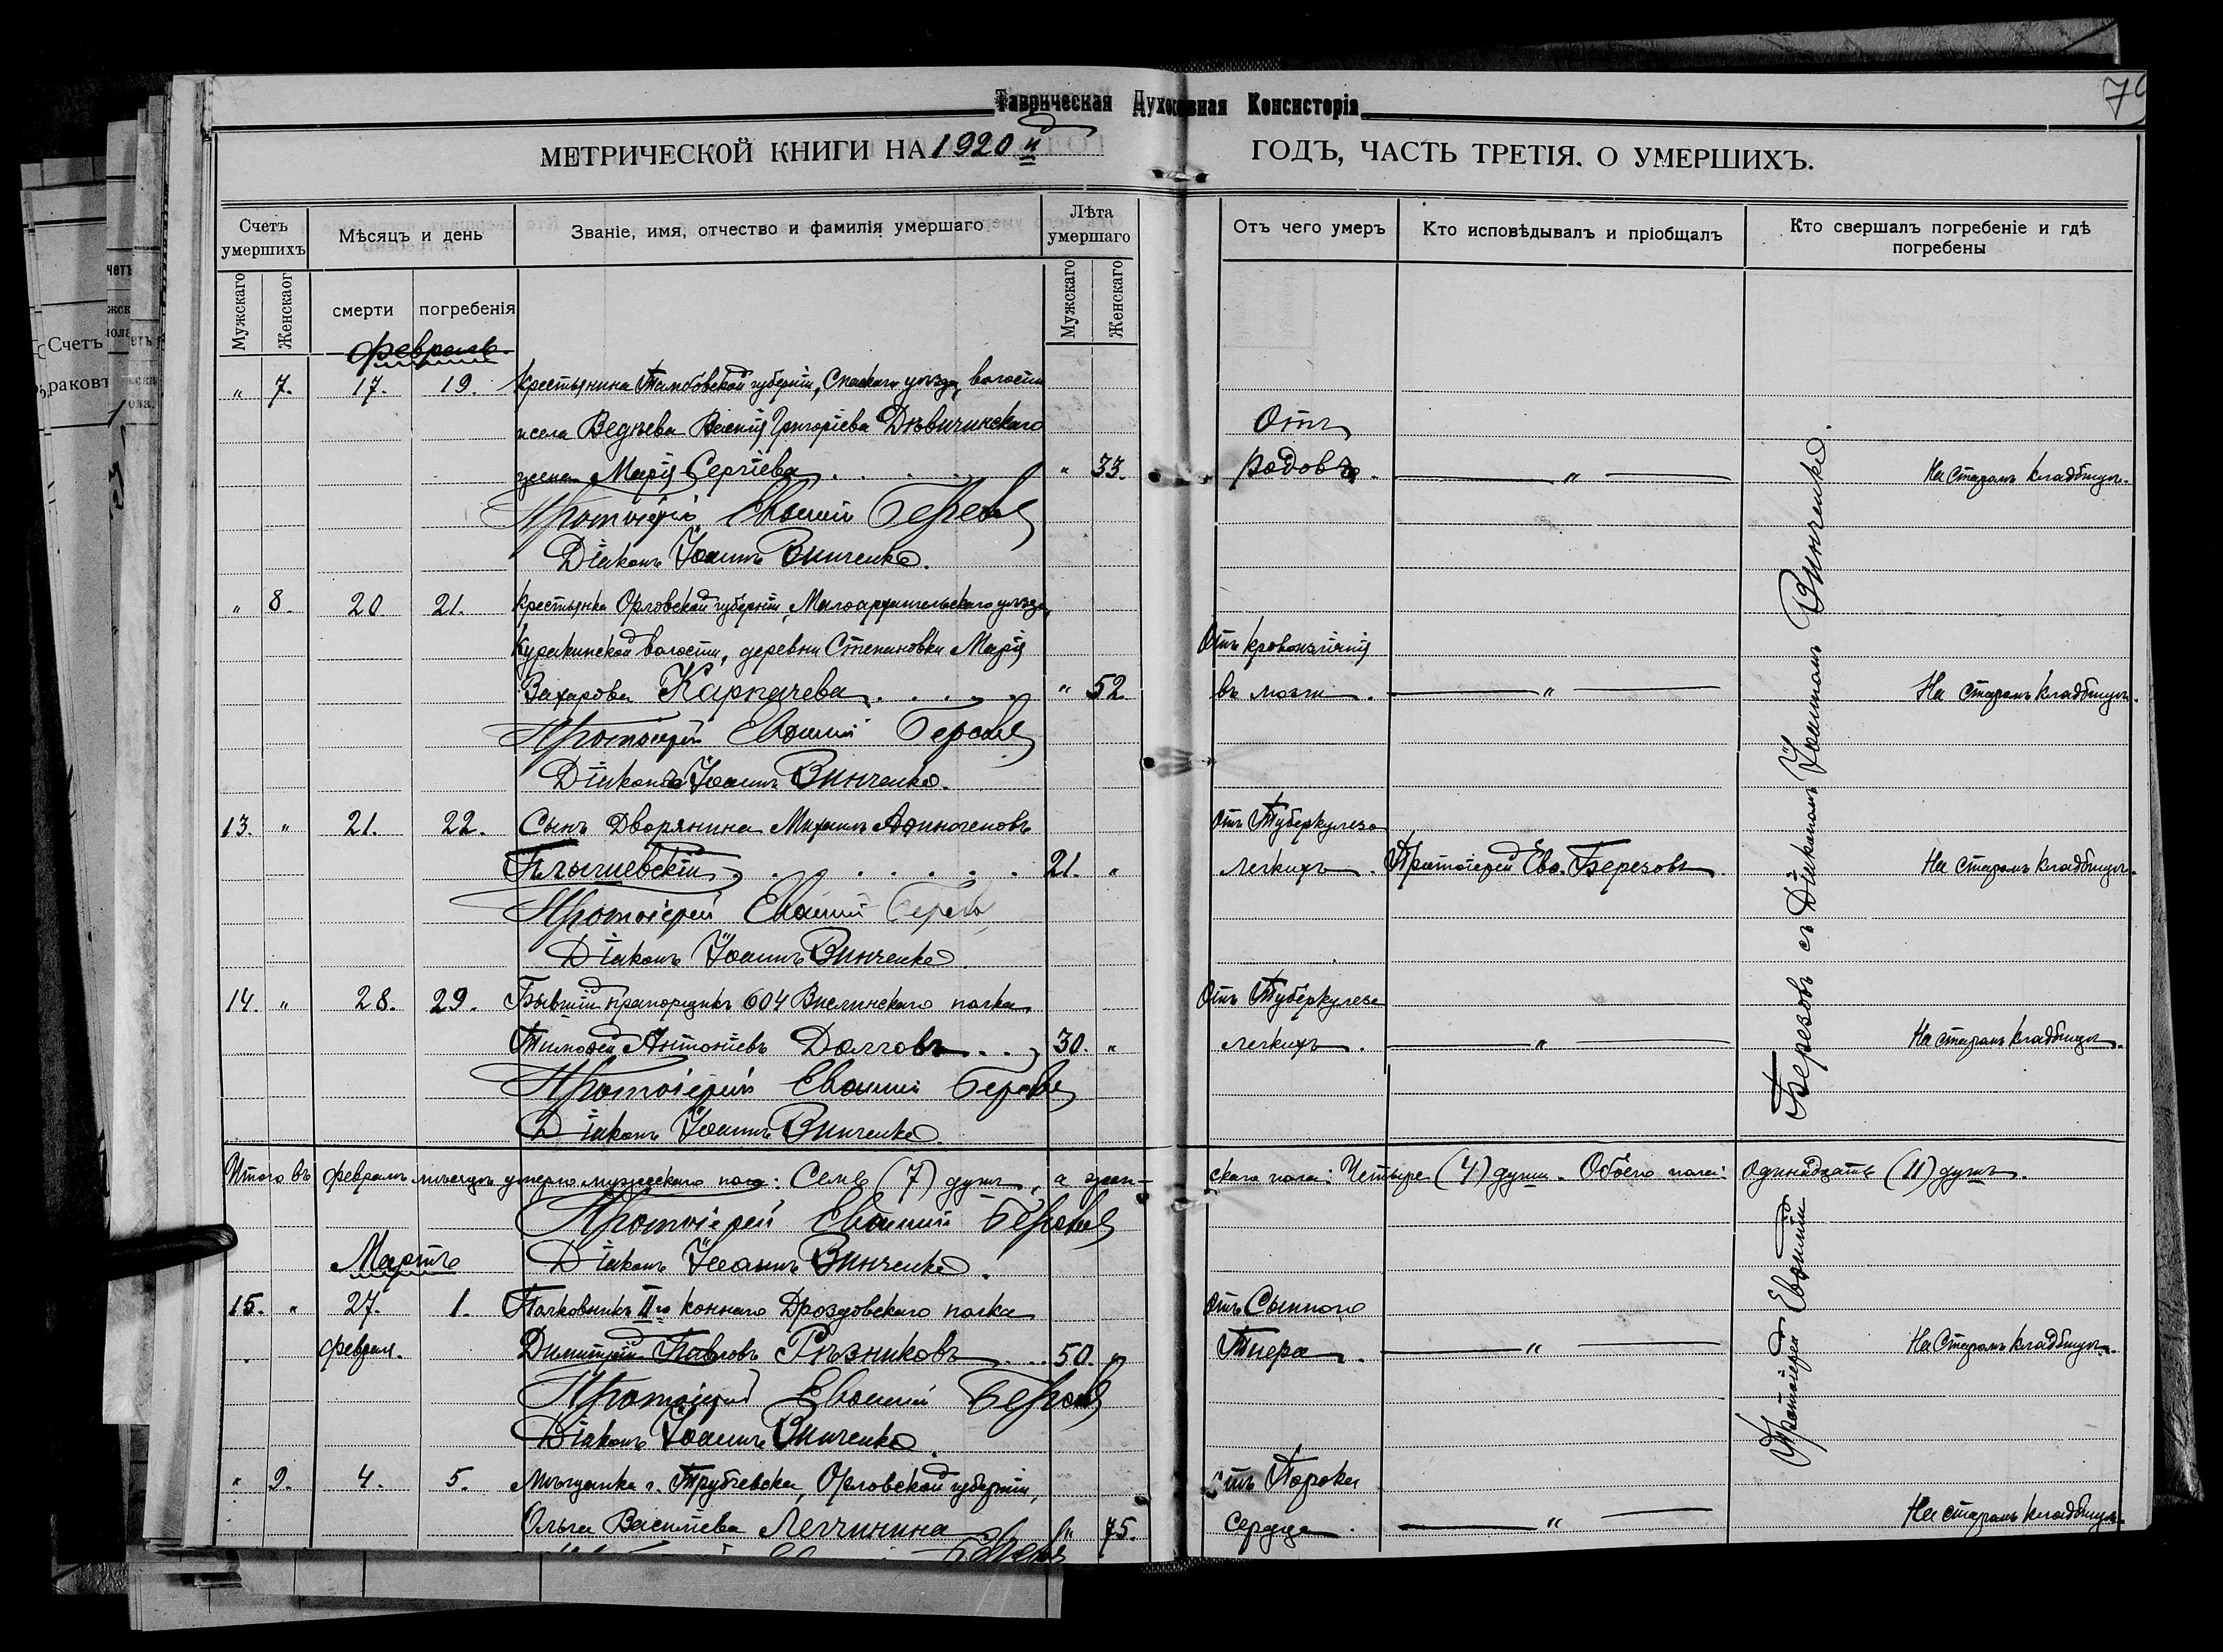 Таврическая Духовная Консисторія
МЕТРИЧЕСКОЙ КНИГИ НА 1920 й ГОДЪ, ЧАСТЬ ТРЕТІЯ. О УМЕРШИХЪ.
Счетъ умершихъ
Мѣсяцъ и день
Званіе, имя, отчество и фамилія умершаго
Лѣта умершаго
Отъ чего умеръ
Кто исповѣдывалъ и пріобщалъ
Кто свершалъ погребеніе и гдѣ погребены
Мужскаго
Женскаог
смерти
погребенія
Мужскаго
Женскаго
Февраль
„ 7. 17. 19. Крестьянина Тамбовской губерніи, Спаскаго уѣзда, волости
и села Веднева Василія Григоріева Дѣвичинскаго Отъ
жена Марія Сергіева „ 33. родовъ. „ На старомъ кладбищѣ.
Протоіерей Евѳимій Березовъ
Діаконъ Іоаннъ Винченко.
„ 8. 20. 21. Крестьянка Орловской губерніи, Малоархангельскаго уѣзда,
Куракинской волости, деревни Степановки Марія Отъ кровоизліянія
Захарова Карпачева „ 52 въ мозги. „ На старомъ кладбищѣ.
Протоіерей Евѳимій Березовъ
Діаконъ Іоаннъ Винченко.
13. „ 21. 22. Сынъ Дворянина Михаилъ Аѳиногеновъ Отъ Туберкулеза
21. „ легкихъ. Протоіерей Евѳ. Березовъ. На старомъ кладбищѣ.
Протоіерей Евѳимій Березовъ
Діаконъ Іоаннъ Винченко.
14. „ 28. 29. Бывшій прапорщикъ 604 Вислинскаго полка Отъ Туберкулеза
Тимоѳей Антоніевъ Долговъ 30. „ легкихъ. „ На старомъ кладбищѣ.
Протоіерей Евѳимій Березовъ
Діаконъ Іоаннъ Винченко.
Итого въ февралѣ мѣсяцѣ умерло мужескаго пола: Семь (7) душъ, а жен-скаго пола: Четыре (4) души. Обоего пола: одинадцать (11) душъ.
Протоіерей Евѳимій Березовъ
Діаконъ Іоаннъ Винченко.
Мартъ
15. „ 27. 1. Полковникъ II го коннаго Дроздовскаго полка отъ Сыпного
февраля. Димитрій Павловъ Рѣзниковъ 50. „ Тифа. „ На Старомъ кладбищѣ.
Протоіерей Евѳимій Березовъ
Діаконъ Іоаннъ Винченко.
„ 9. 4. 5. Мѣщанка г. Трубчевска, Орловской губерніи, Отъ Порока
Ольга Васильева Леччинина „ 75. Сердца. „ На старомъ кладбищѣ.
Протоіерей Евѳимій Березовъ съ Діакономъ Іоанномъ Винченко.
Счетъ